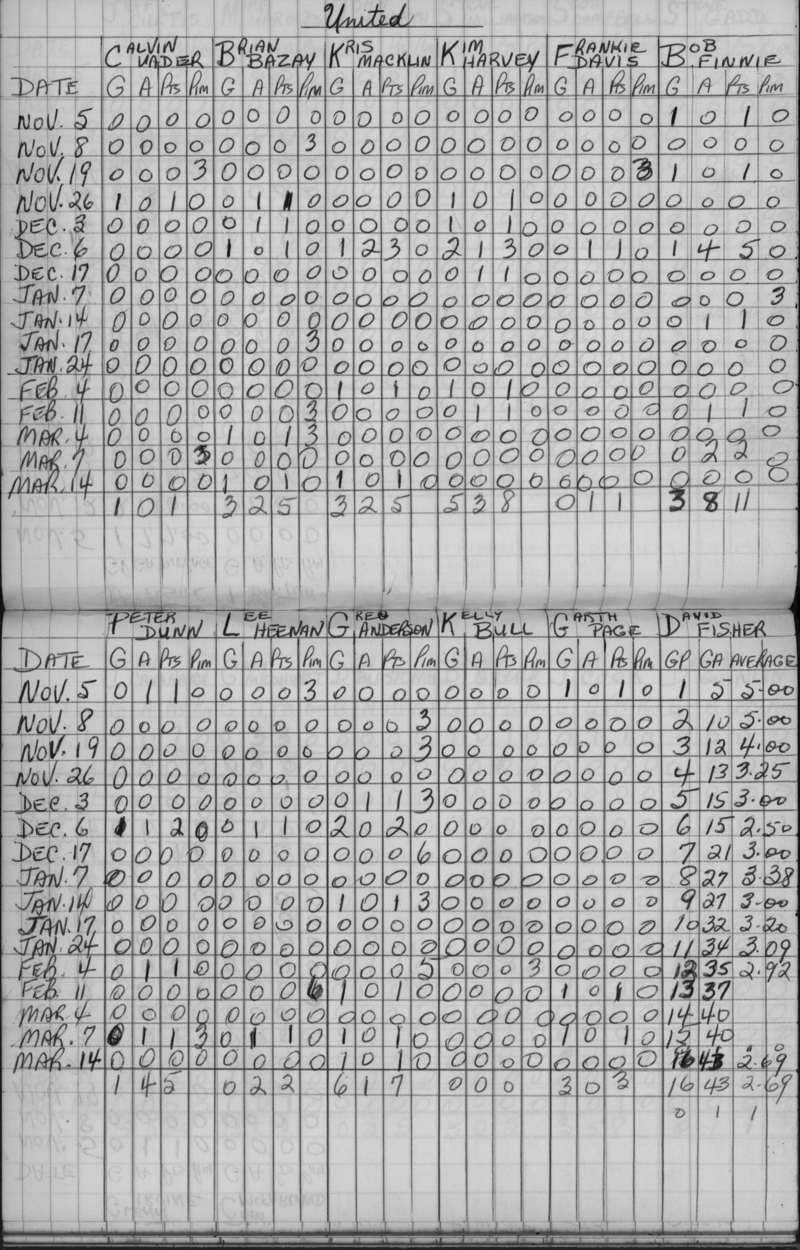 United
CALVIN VADER BRIAN BAZAY KRIS MACKLIN KIM HARVEY FRANKIE DAVIS BOB FINNIE
DATE G A Pts Pim G A Pts Pim G A Pts Pim G A Pts Pim G A Pts Pim G A Pts Pim
NOV. 5 0 0 0 0 0 0 0 0 0 0 0 0 0 0 0 0 0 0 0 0 1 0 1 0
NOV. 8 0 0 0 0 0 0 0 3 0 0 0 0 0 0 0 0 0 0 0 0 0 0 0 0
NOV. 19 0 0 0 3 0 0 0 0 0 0 0 0 0 0 0 0 0 0 0 3 1 0 1 0
NOV. 26 1 0 1 0 0 1 1 0 0 0 0 0 1 0 1 0 0 0 0 0 0 0 0 0
DEC. 3 0 0 0 0 0 1 1 0 0 0 0 0 1 0 1 0 0 0 0 0 0 0 0 0
DEC. 6 0 0 0 0 1 0 1 0 1 2 3 0 2 1 3 0 0 1 1 0 1 4 5 0
DEC. 17 0 0 0 0 0 0 0 0 0 0 0 0 0 1 1 0 0 0 0 0 0 0 0 0
JAN. 7 0 0 0 0 0 0 0 0 0 0 0 0 0 0 0 0 0 0 0 0 0 0 0 3
JAN. 14 0 0 0 0 0 0 0 0 0 0 0 0 0 0 0 0 0 0 0 0 0 1 1 0
JAN. 17 0 0 0 0 0 0 0 3 0 0 0 0 0 0 0 0 0 0 0 0 0 0 0 0
JAN. 24 0 0 0 0 0 0 0 0 0 0 0 0 0 0 0 0 0 0 0 0 0 0 0 0
FEB. 4 0 0 0 0 0 0 0 0 1 0 1 0 1 0 1 0 0 0 0 0 0 0 0 0
FEB. 11 0 0 0 0 0 0 0 3 0 0 0 0 0 1 1 0 0 0 0 0 0 1 1 0
MAR. 4 0 0 0 0 1 0 1 3 0 0 0 0 0 0 0 0 0 0 0 0 0 0 0 0
MAR. 7 0 0 0 3 0 0 0 0 0 0 0 0 0 0 0 0 0 0 0 0 0 2 2 0
MAR. 14 0 0 0 0 1 0 1 0 1 0 1 0 0 0 0 0 0 0 0 0 0 0 0 0
1 0 1 3 2 5 3 2 5 5 3 8 0 1 1 3 8 11
PETER DUNN LEE HEENAN GREG ANDERSON KELLY BULL GARTH PAGE DAVID FISHER
DATE G A Pts Pim G A Pts Pim G A Pts Pim G A Pts Pim G A Pts Pim GP GA AVERAGE
NOV. 5 0 1 1 0 0 0 0 3 0 0 0 0 0 0 0 0 1 0 1 0 1 5 5.00
NOV. 8 0 0 0 0 0 0 0 0 0 0 0 3 0 0 0 0 0 0 0 0 2 10 5.00
NOV. 19 0 0 0 0 0 0 0 0 0 0 0 3 0 0 0 0 0 0 0 0 3 12 4.00
NOV. 26 0 0 0 0 0 0 0 0 0 0 0 0 0 0 0 0 0 0 0 0 4 13 3.25
DEC. 3 0 0 0 0 0 0 0 0 0 1 1 3 0 0 0 0 0 0 0 0 5 15 3.00
DEC. 6 1 1 2 0 0 1 1 0 2 0 2 0 0 0 0 0 0 0 0 0 6 15 2.50
DEC. 17 0 0 0 0 0 0 0 0 0 0 0 6 0 0 0 0 0 0 0 0 7 21 3.00
JAN. 7 0 0 0 0 0 0 0 0 0 0 0 0 0 0 0 0 0 0 0 0 8 27 3.38
JAN. 14 0 0 0 0 0 0 0 0 1 0 1 3 0 0 0 0 0 0 0 0 9 27 3.00
JAN. 17 0 0 0 0 0 0 0 0 0 0 0 0 0 0 0 0 0 0 0 0 10 32 3.20
JAN. 24 0 0 0 0 0 0 0 0 0 0 0 0 0 0 0 0 0 0 0 0 11 34 3.09
FEB. 4 0 1 1 0 0 0 0 0 0 0 0 5 0 0 0 3 0 0 0 0 12 35 2.92
FEB. 11 0 0 0 0 0 0 0 6 1 0 1 0 0 0 0 0 1 0 1 0 13 37
MAR. 4 0 0 0 0 0 0 0 0 0 0 0 0 0 0 0 0 0 0 0 0 14 40
MAR. 7 0 1 1 3 0 1 1 0 1 0 1 0 0 0 0 0 1 0 1 0 15 40
MAR. 14 0 0 0 0 0 0 0 0 1 0 1 0 0 0 0 0 0 0 0 0 16 43 2.69
1 4 5 0 2 2 6 1 7 0 0 0 3 0 3 16 43 2.69
0 1 1